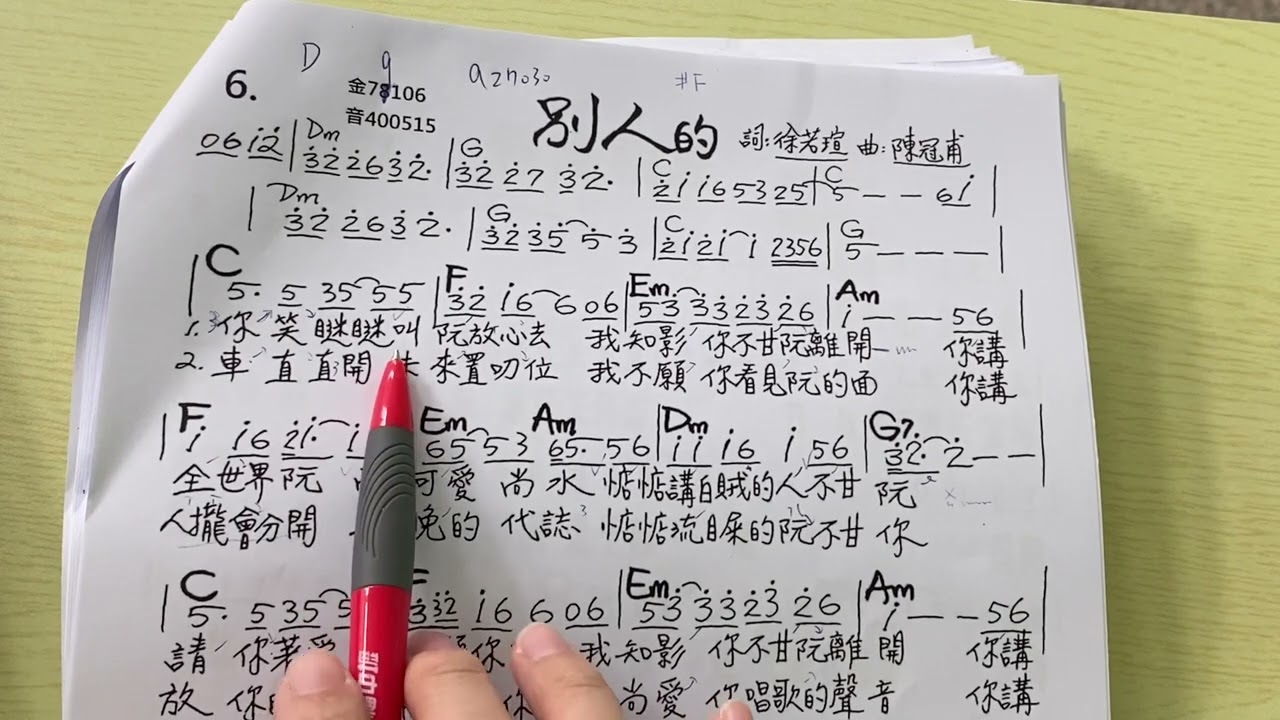 D 9 a2no30 #F
6. 金78106
音400515
別人的 詞:徐若瑄 曲:陳冠甫
Dm G C C
06i2 | 32 26 32. | 32 27 32. | 2i i6 53 25 | 5 — — 6i |
Dm G C G
| 32 26 32. | 32 35 5 3 | 2i 2i i 2356 | 5 — — — |
C F Em Am
| 5. 5 35 55 | 32 i6 6 06 | 53 33 23 26 | i — — 56 |
1. 你 笑瞇瞇叫 阮放心去 我知影 你不甘阮離開 你講
2. 車 直直開 來置叨位 我不願 你看見阮的面 你講
F Em Am Dm G7
| i i6 2i. i 65 53 65. 56 | ii i6 i 56 | 32. 2 — — |
全世界阮 可愛 尚水 惦惦講白賊的人不甘 阮
人攏會分開 的 代誌 惦惦流目屎的阮不甘 你
C Em Am
| 5. 5 35 332 i6 6 06 | 53 33 23 26 | i — — 56 |
請 你著愛 你 我知影 你不甘阮離開 你講
放 你 你 尚愛 你唱歌的聲音 你講